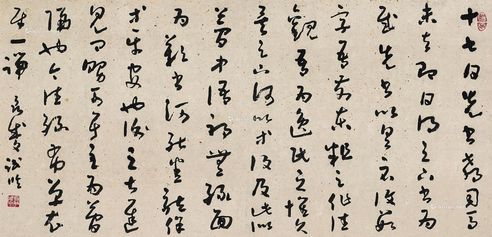 十七日先書郗司馬
未去即日得足下書為
慰先書以具示復數
字吾前東粗足作佳
觀吾為逸民之懷久
矣足下何以等復及此似
夢中語耶無緣言面
為歎書何能悉龍保
等平安也謝之甚遲
見卿舅可耳至為簡
隔也今往絲布單衣
財一端